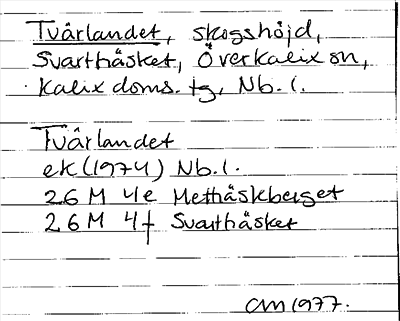 Tvärlandet, skogshöjd,
Svartbäsket, Överkalix sn,
Kalix doms. tg, Nb. l.
Tvärlandet
ek (1974) Nb. l.
26 M 4e Metbäskberget
26 M 4f Svartbäsket
CM 1977.